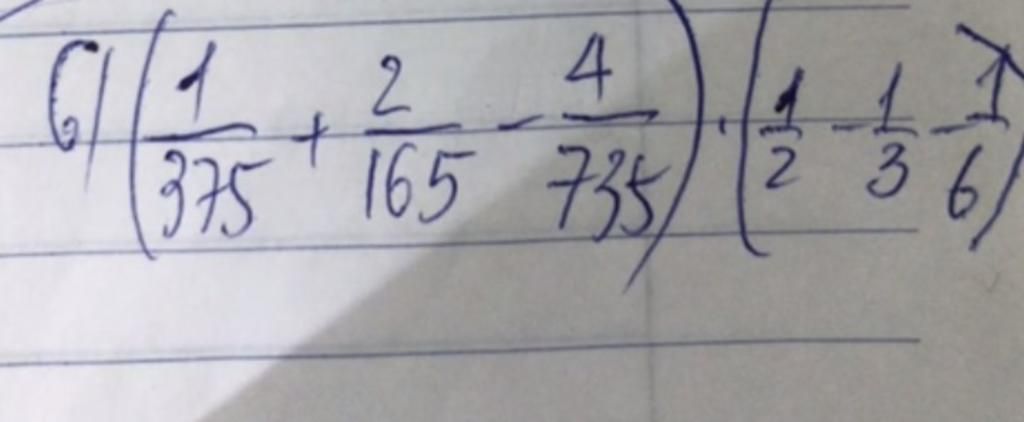 6) (1/375 + 2/165 - 4/735) · (1/2 - 1/3 - 1/6)